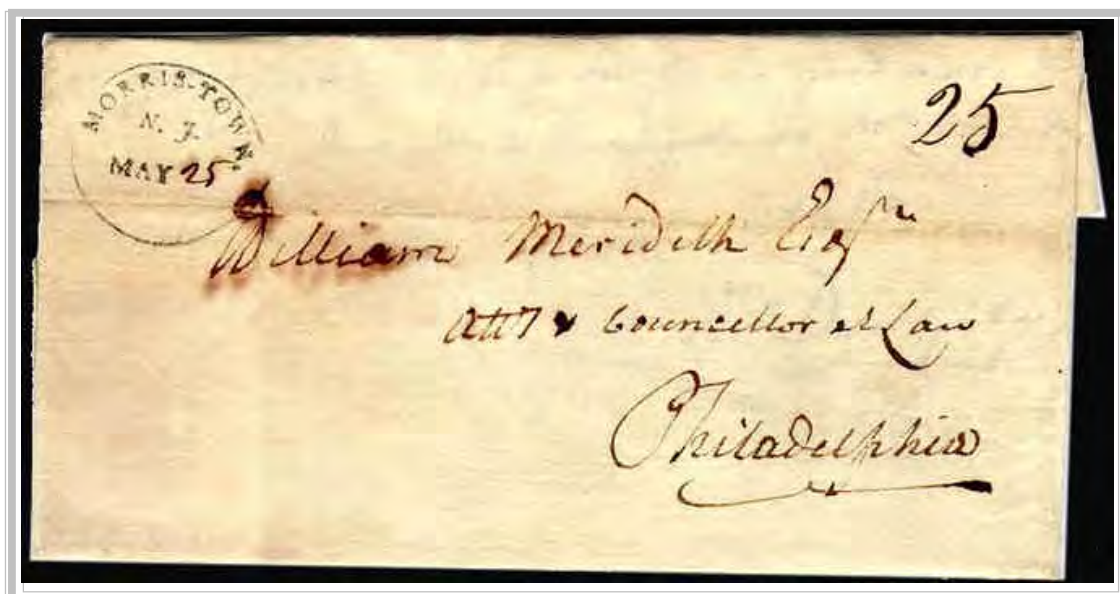 MORRIS-TOWN.
N. J.
MAY 25
25
William Meredith Esqre
Atty & Councellor at Law
Philadelphia